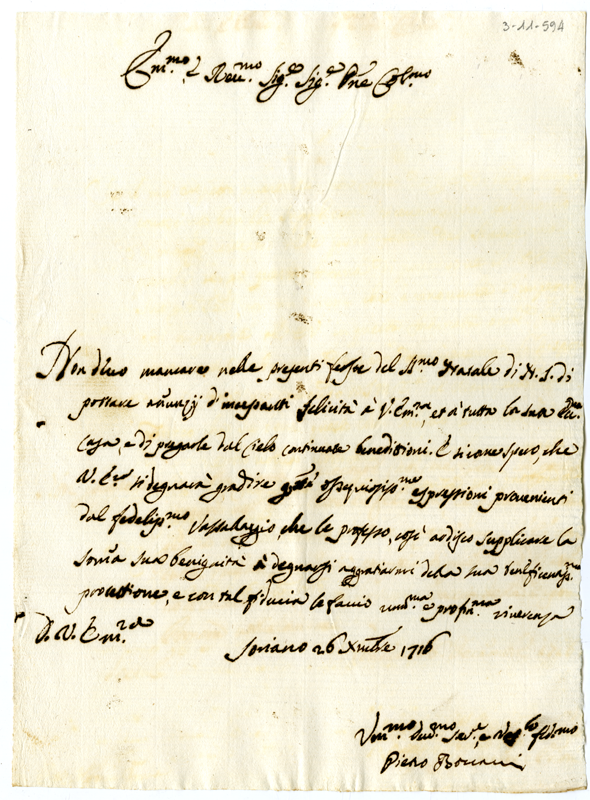 3-11-594
Em.mo e Reu.mo Sig.e Sig.e Pne Col.mo
Non deuo mancare nelle presenti feste del S.mo Natale di N. S. di
portare annunzij d'incessanti felicità à V. Em.za, et à tutta la sua
casa, e di pregarle dal cielo continuate beneditioni. E sicome spero, che
V. E. si degnarà gradire queste ossequiosiss.me espressioni provenienti
dal fedeliss.mo vassallaggio, che le professo, così ardisco supplicare la
somma sua benignità à degnarsi aggratiarmi della sua beneficentiss.ma
protettione, e con tal fiducia le faccio um.ma e profon.ma riverenza
D. V. Em.za
Soriano 26 Xmbre 1716
Um.mo Deu.mo Ser.e, e
Pietro